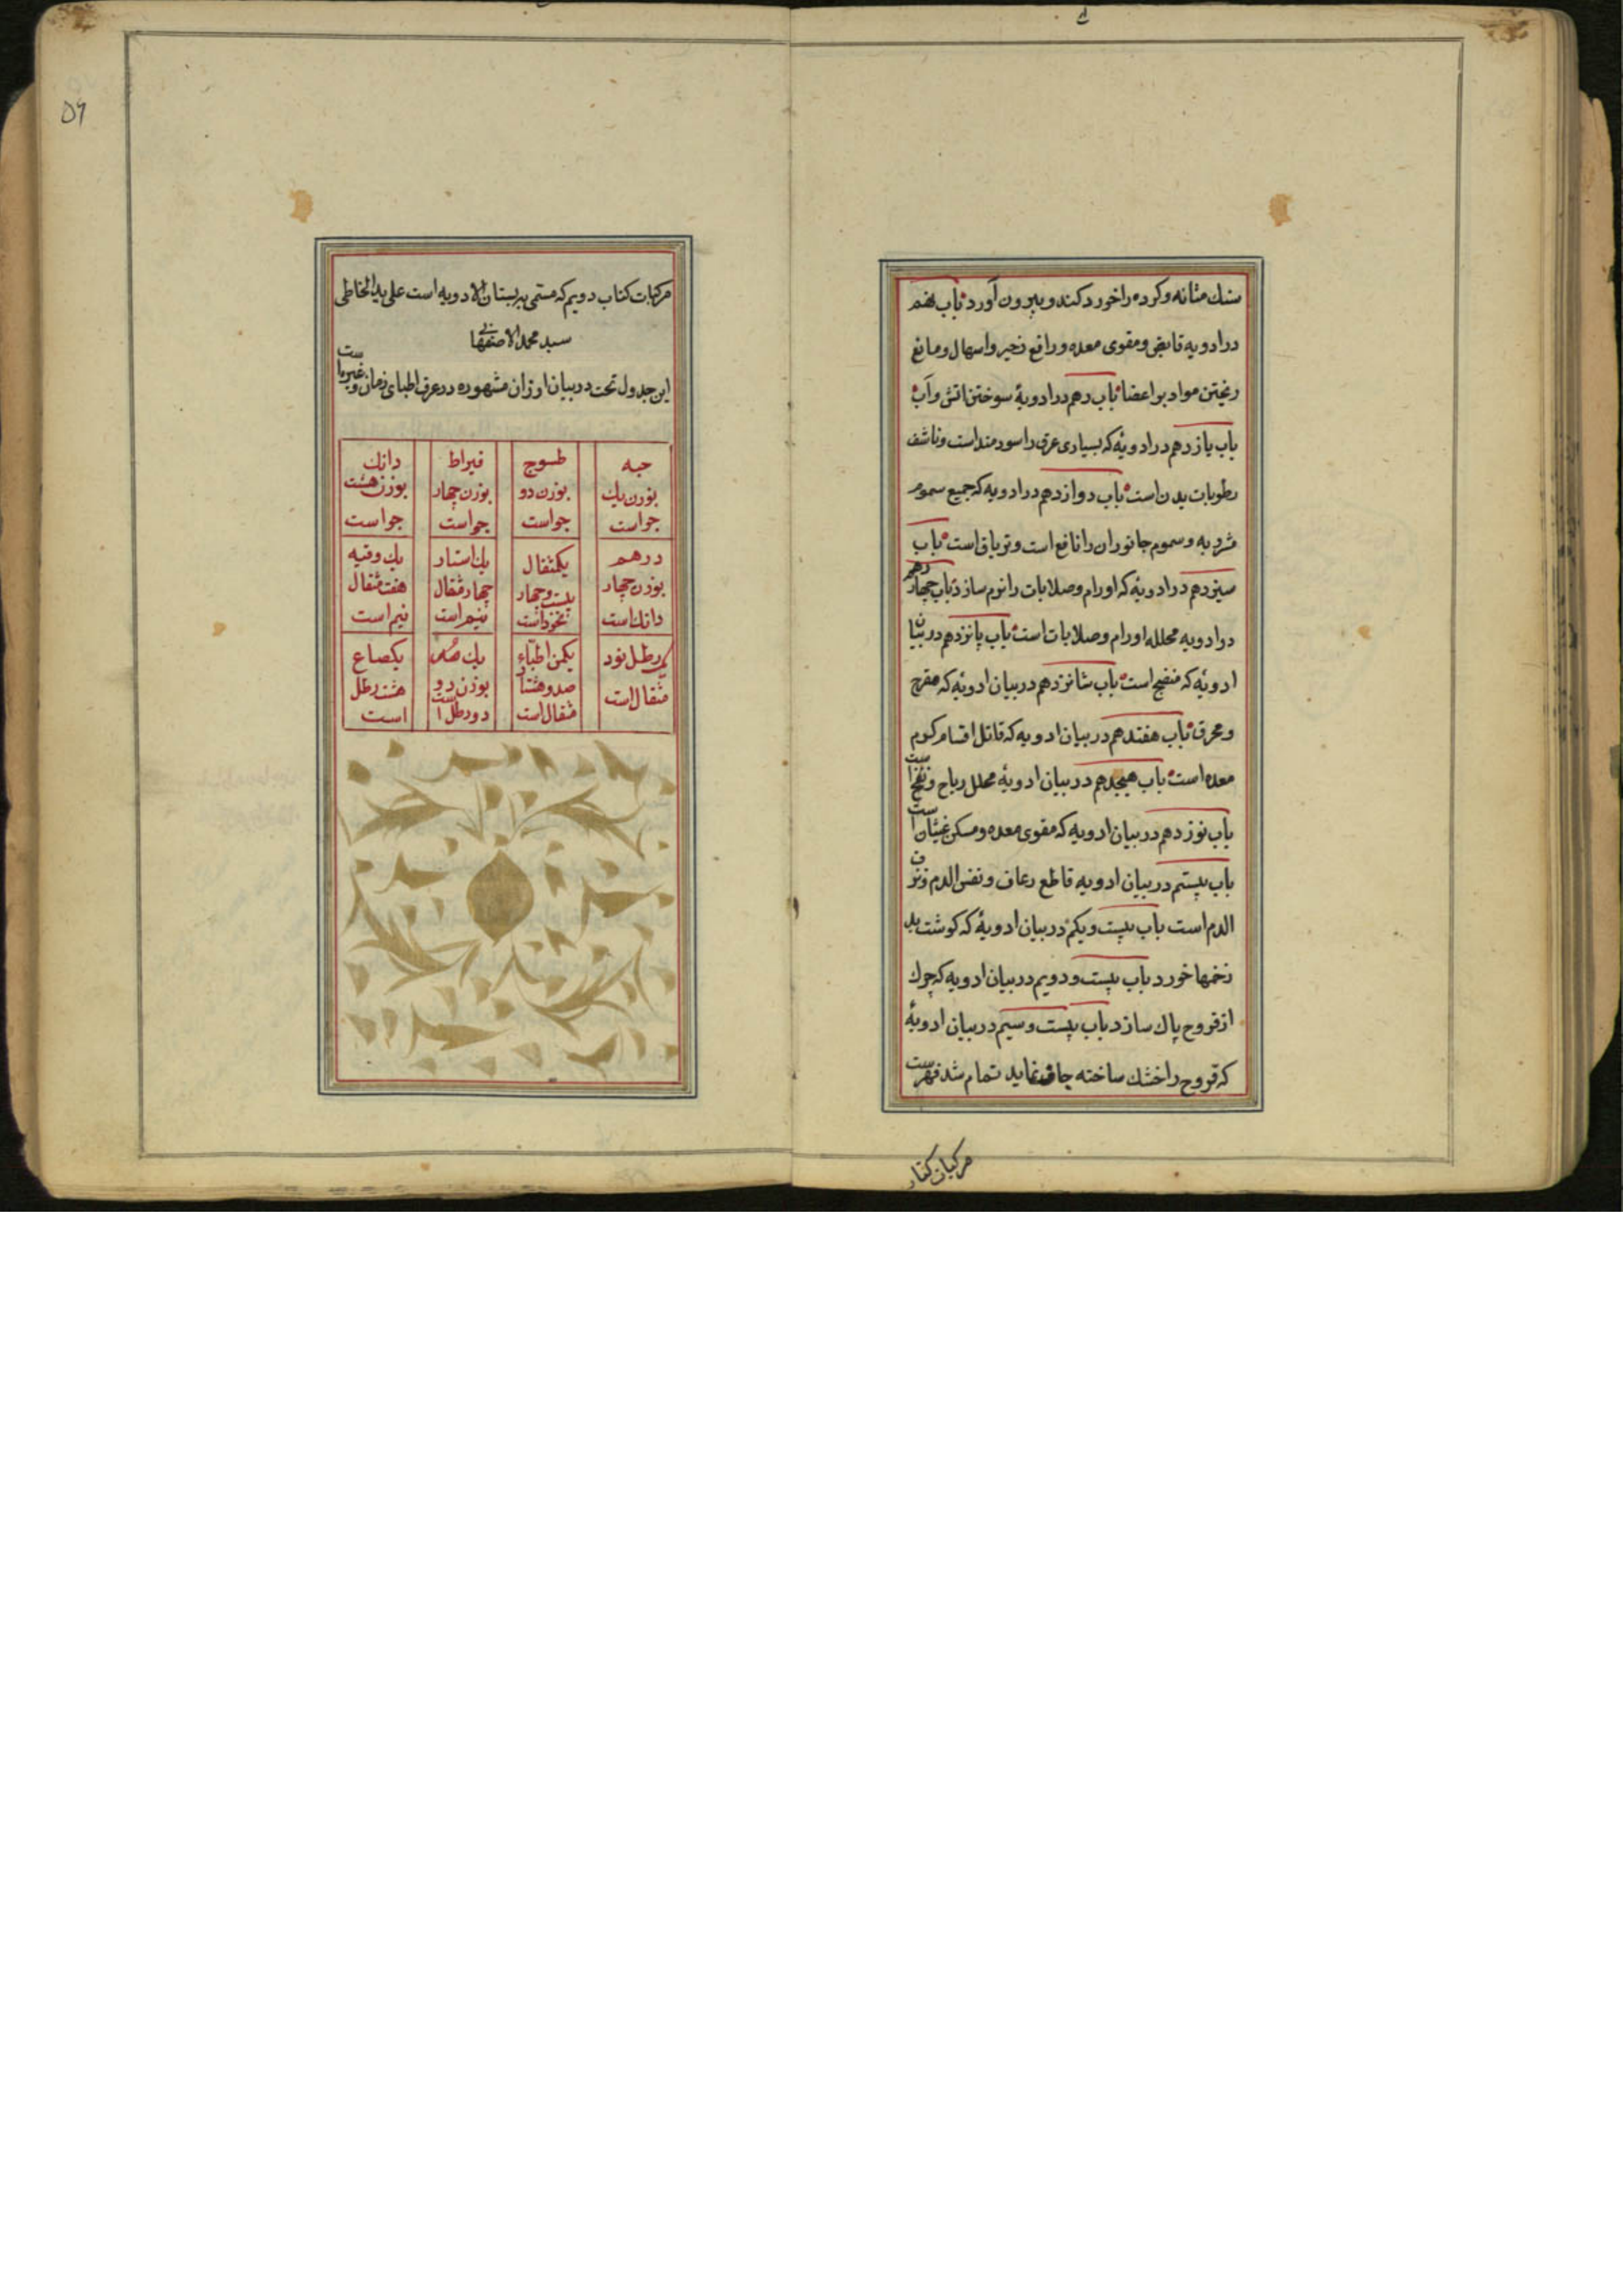 سنك مثانه و كرده را خورد كند و بيرون آورد باب نهم
در ادويه قابض و مقوى معده و رافع زحير و اسهال و مانع
ريختن مواد بر اعضا باب دهم در ادويۀ سوختن اتش و آب
باب يازدهم در ادويۀ كه بسيارى عرق را سودمند است و ناشف
رطوبات بدن است باب دوازدهم در ادويه كه جميع سموم
مشروبه و سموم جانوران را نافع است و ترياق است باب
سيزدهم در ادويۀ كه اورام و صلابات را نرم سازد باب چهاردهم
در ادويه محلله اورام و صلابات است باب پانزدهم در بيان
ادويۀ كه منضج است باب شانزدهم در بيان ادويۀ كه مقرح
و محرق باب هفتدهم در بيان ادويه كه قاتل اقسام كرم
معده است باب هيجدهم در بيان ادويۀ محلل رياح و نفخ است
باب نوزدهم در بيان ادويه كه مقوى معده و مسكن غثيان است
باب بيستم در بيان ادويه قاطع رعاف و نفس الدم و نزف
الدم است باب بيست و يكم در بيان ادويۀ كه كوشت بد
زخمها خورد باب بيست و دويم در بيان ادويه كه چرك
از قروح پاك سازد باب بيست و سيم در بيان ادويۀ
كه قروح را خشك ساخته چاق نمايد تمام شد فهرست
مركبات كتاب
۵۶
مركبات كتاب دويم كه مسمى به بستان الادويه است على يد الخاطى
سيد محمد الاصفهانى
اين جدول تحت در بيان اوزان مشهوره در عرف اطباى زمان و غيره است
حبه بوزن يك جو است
طسوج بوزن دو جو است
قيراط بوزن چهار جو است
دانك بوزن هشت جو است
درهم بوزن چهار دانك است
يكمثقال بيست و چهار نخود است
يك استار چهار مثقال نيم است
يك وقيه هفت مثقال نيم است
يك رطل نود مثقال است
يكمن اطباء صد و هشتاد مثقال است
يك مد بوزن دو رطل است
يكصاع هشت رطل است